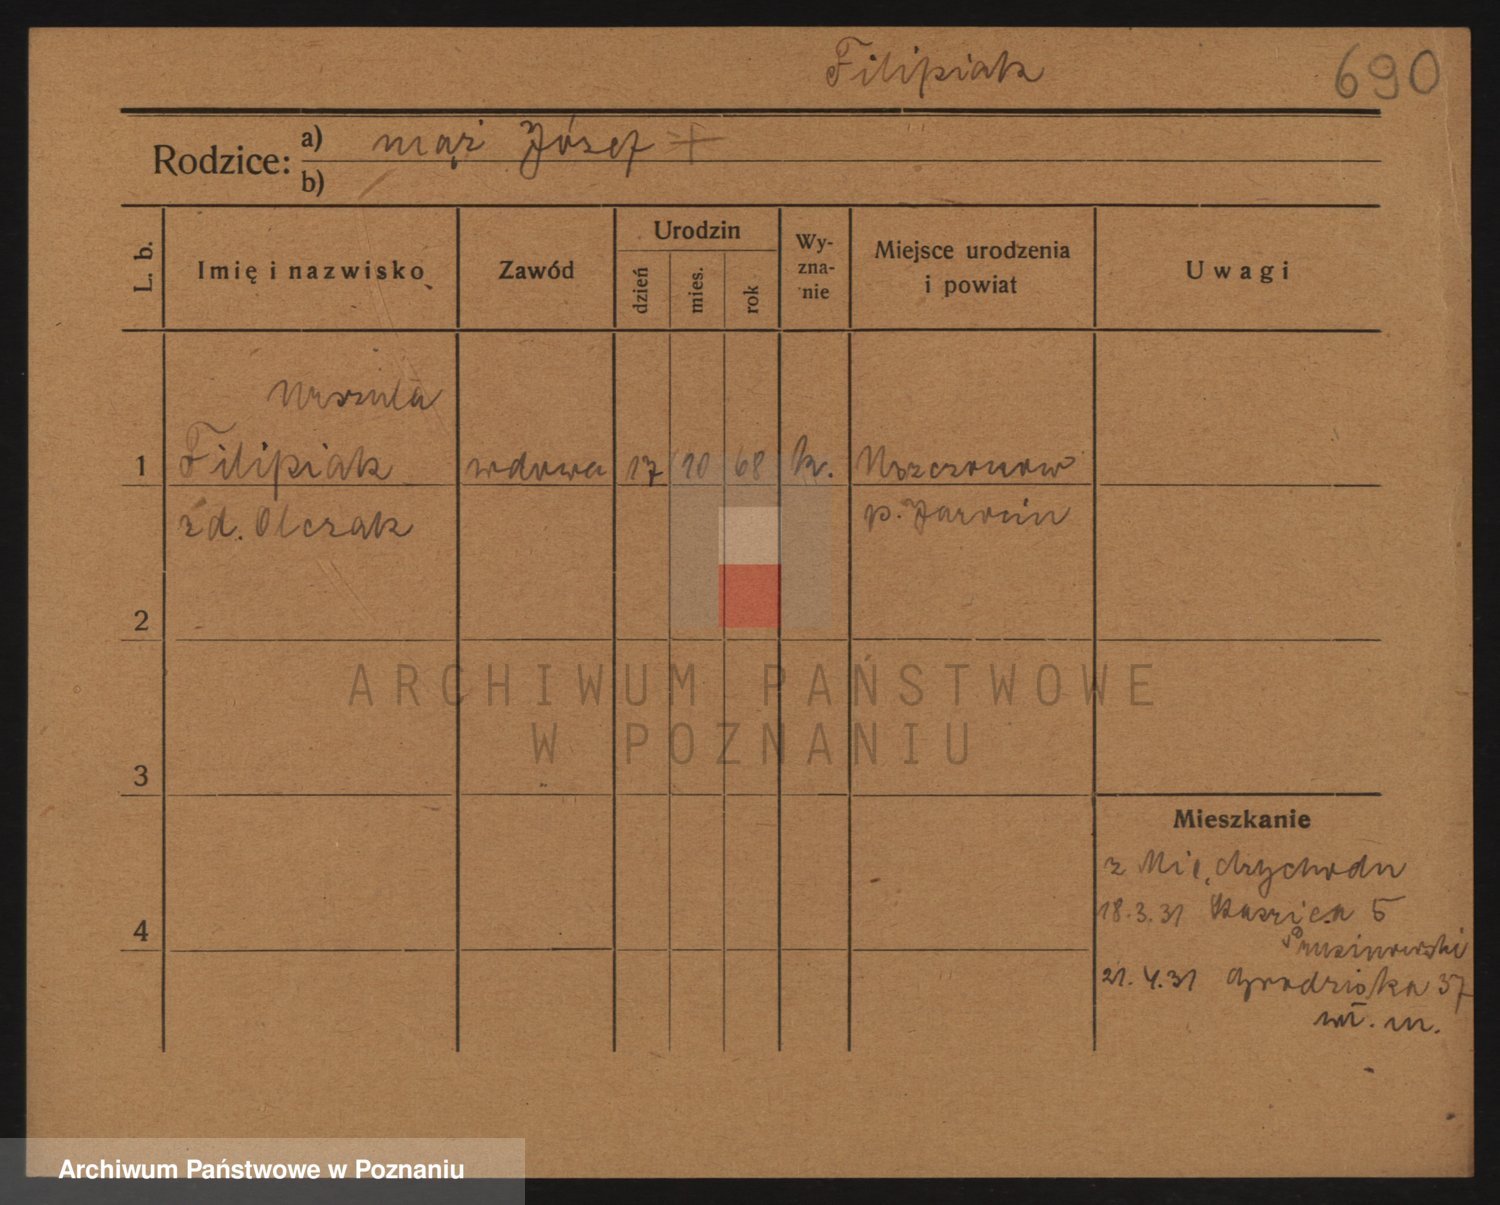 Filipiak
690
Rodzice:
a) mąż Józef +
b)
L. b.
Imię i nazwisko
Zawód
Urodzin
dzień
mies.
rok
Wy-
zna-
nie
Miejsce urodzenia
i powiat
Uwagi
Urszula
1 Filipiak wdowa 17 10 68 k.
żd. Olczak p. Jarocin
2
3
4
Mieszkanie
z Międzychodu
18.3.31 5
21.4.31 Grodziska 37
wł. m.
ARCHIWUM PAŃSTWOWE
W POZNANIU
Archiwum Państwowe w Poznaniu